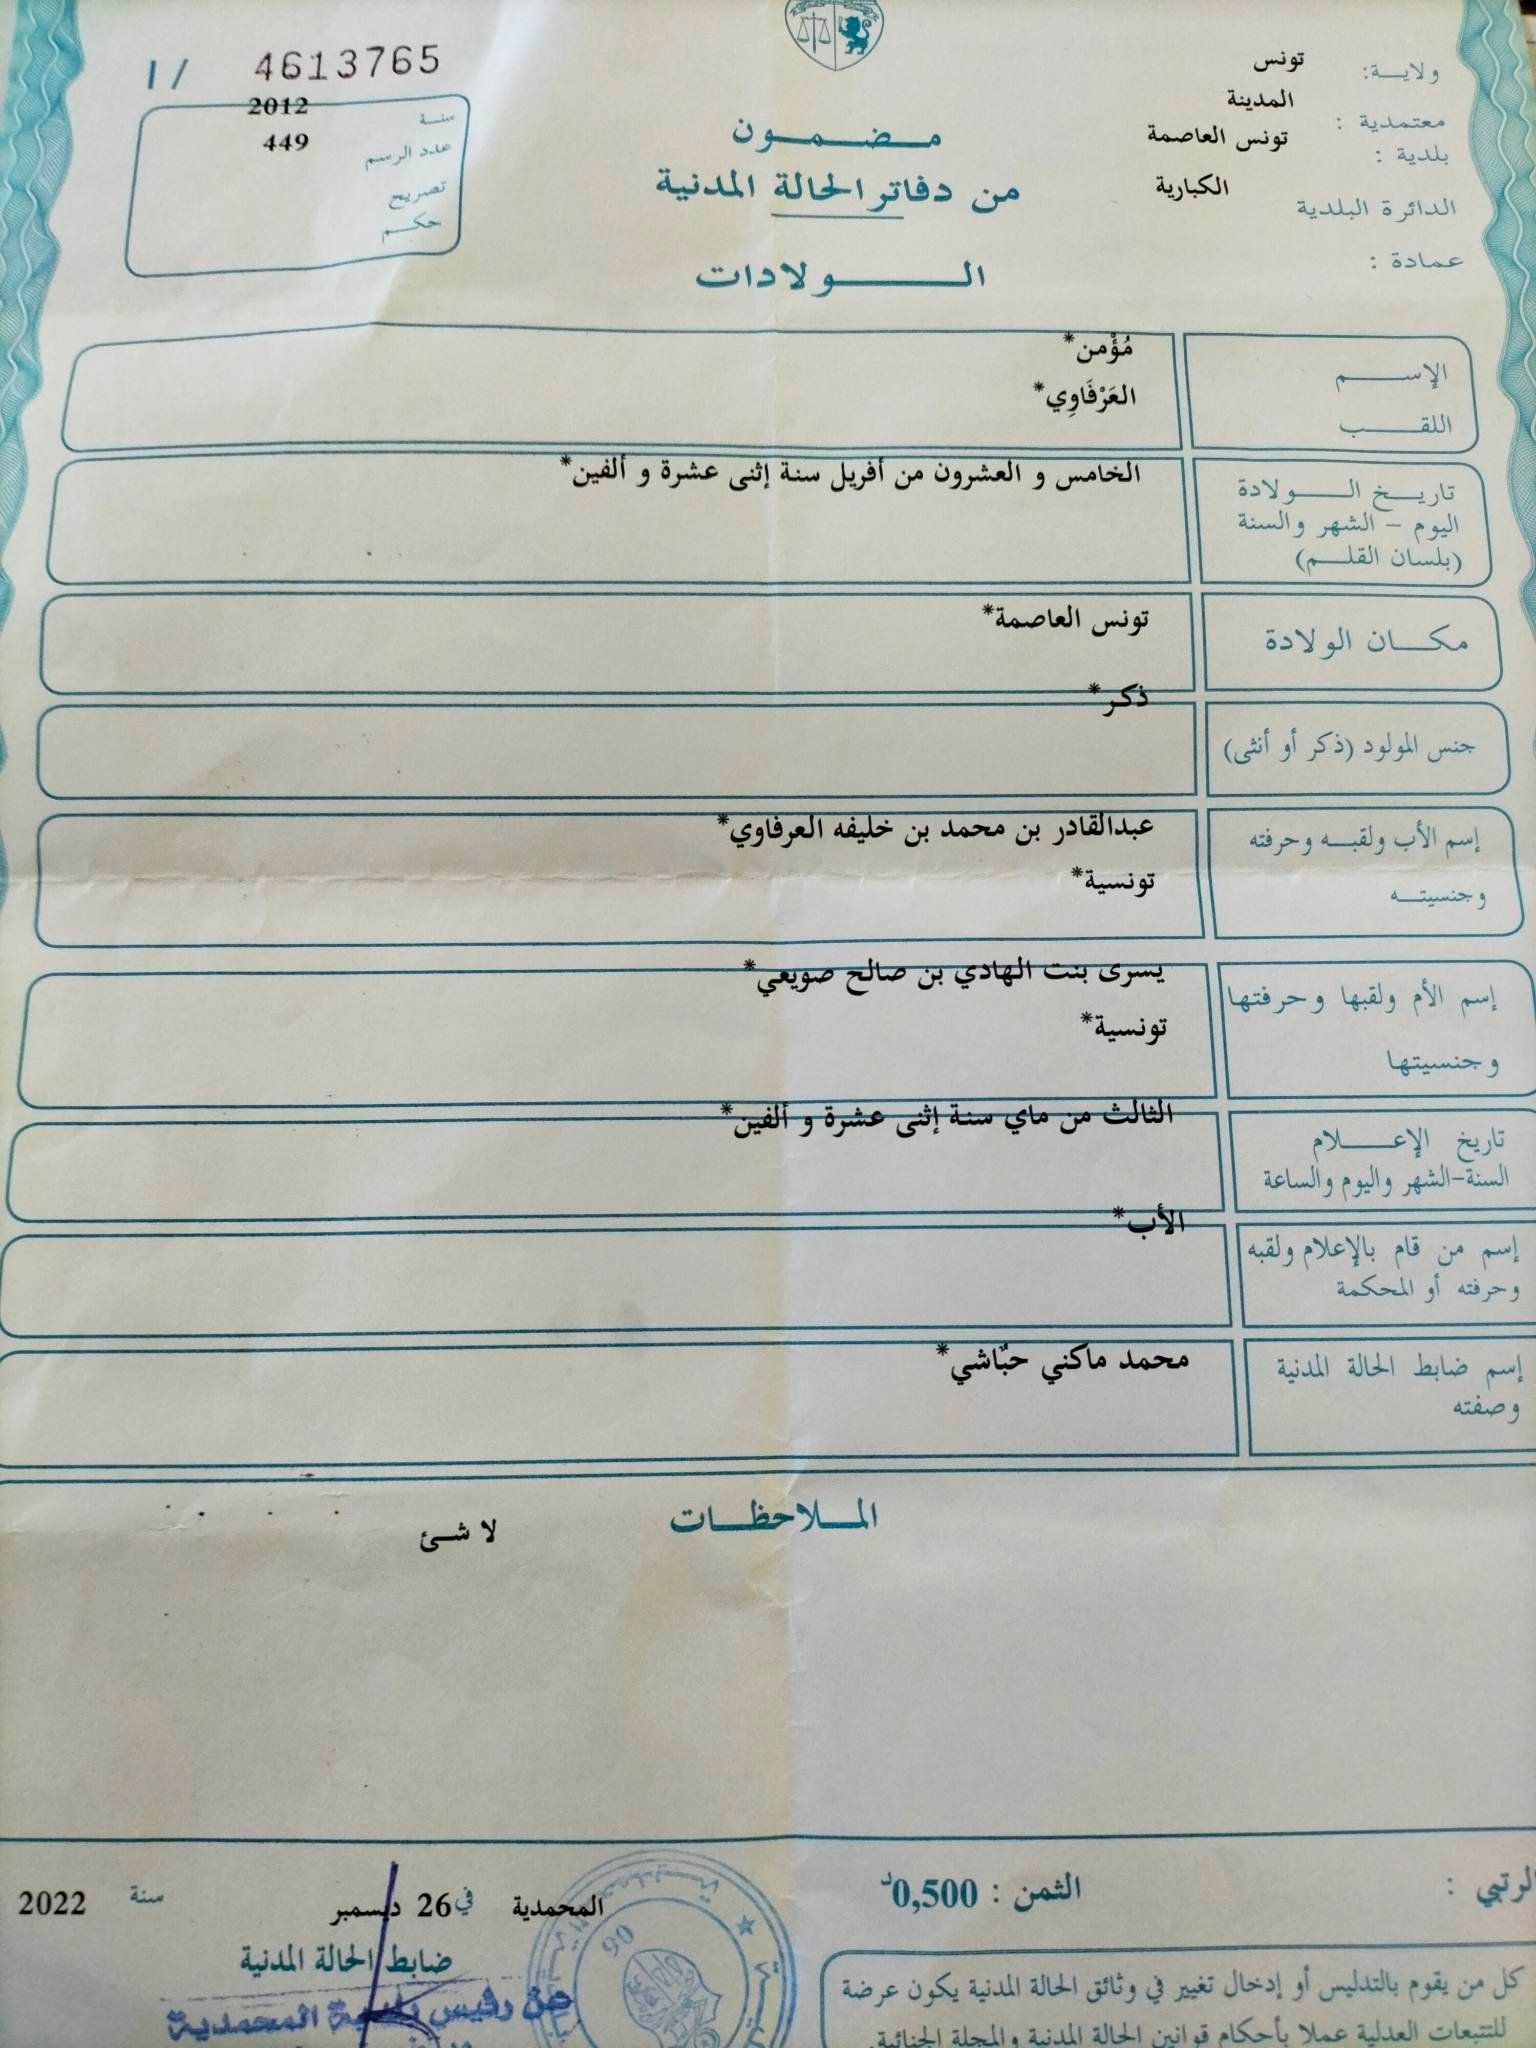 ولاية: تونس
معتمدية : المدينة
بلدية : تونس العاصمة
الدائرة البلدية الكبارية
عمادة :
مضمون
من دفاتر الحالة المدنية
الولادات
4613765 /1
سنة 2012
عدد الرسم 449
تصريح
حكم
الإسم مُؤْمن*
اللقب العَرْفَاوِي*
تاريخ الولادة الخامس و العشرون من أفريل سنة إثنى عشرة و ألفين*
اليوم - الشهر والسنة
(بلسان القلم)
مكان الولادة تونس العاصمة*
جنس المولود (ذكر أو أنثى) ذكر*
إسم الأب ولقبه وحرفته عبدالقادر بن محمد بن خليفه العرفاوي*
وجنسيته تونسية*
إسم الأم ولقبها وحرفتها يسرى بنت الهادي بن صالح صويعي*
وجنسيتها تونسية*
تاريخ الإعلام الثالث من ماي سنة إثنى عشرة و ألفين*
السنة-الشهر واليوم والساعة
إسم من قام بالإعلام ولقبه الأب*
وحرفته أو المحكمة
إسم ضابط الحالة المدنية محمد ماكني حبّاشي*
وصفته
الملاحظات
لا شئ
الرتبي :
الثمن : 0,500د
المحمدية في 26 ديسمبر سنة 2022
ضابط الحالة المدنية
عن رئيس بلدية المحمدية
كل من يقوم بالتدليس أو إدخال تغيير في وثائق الحالة المدنية يكون عرضة
للتتبعات العدلية عملا بأحكام قوانين الحالة المدنية والمجلة الجنائية.